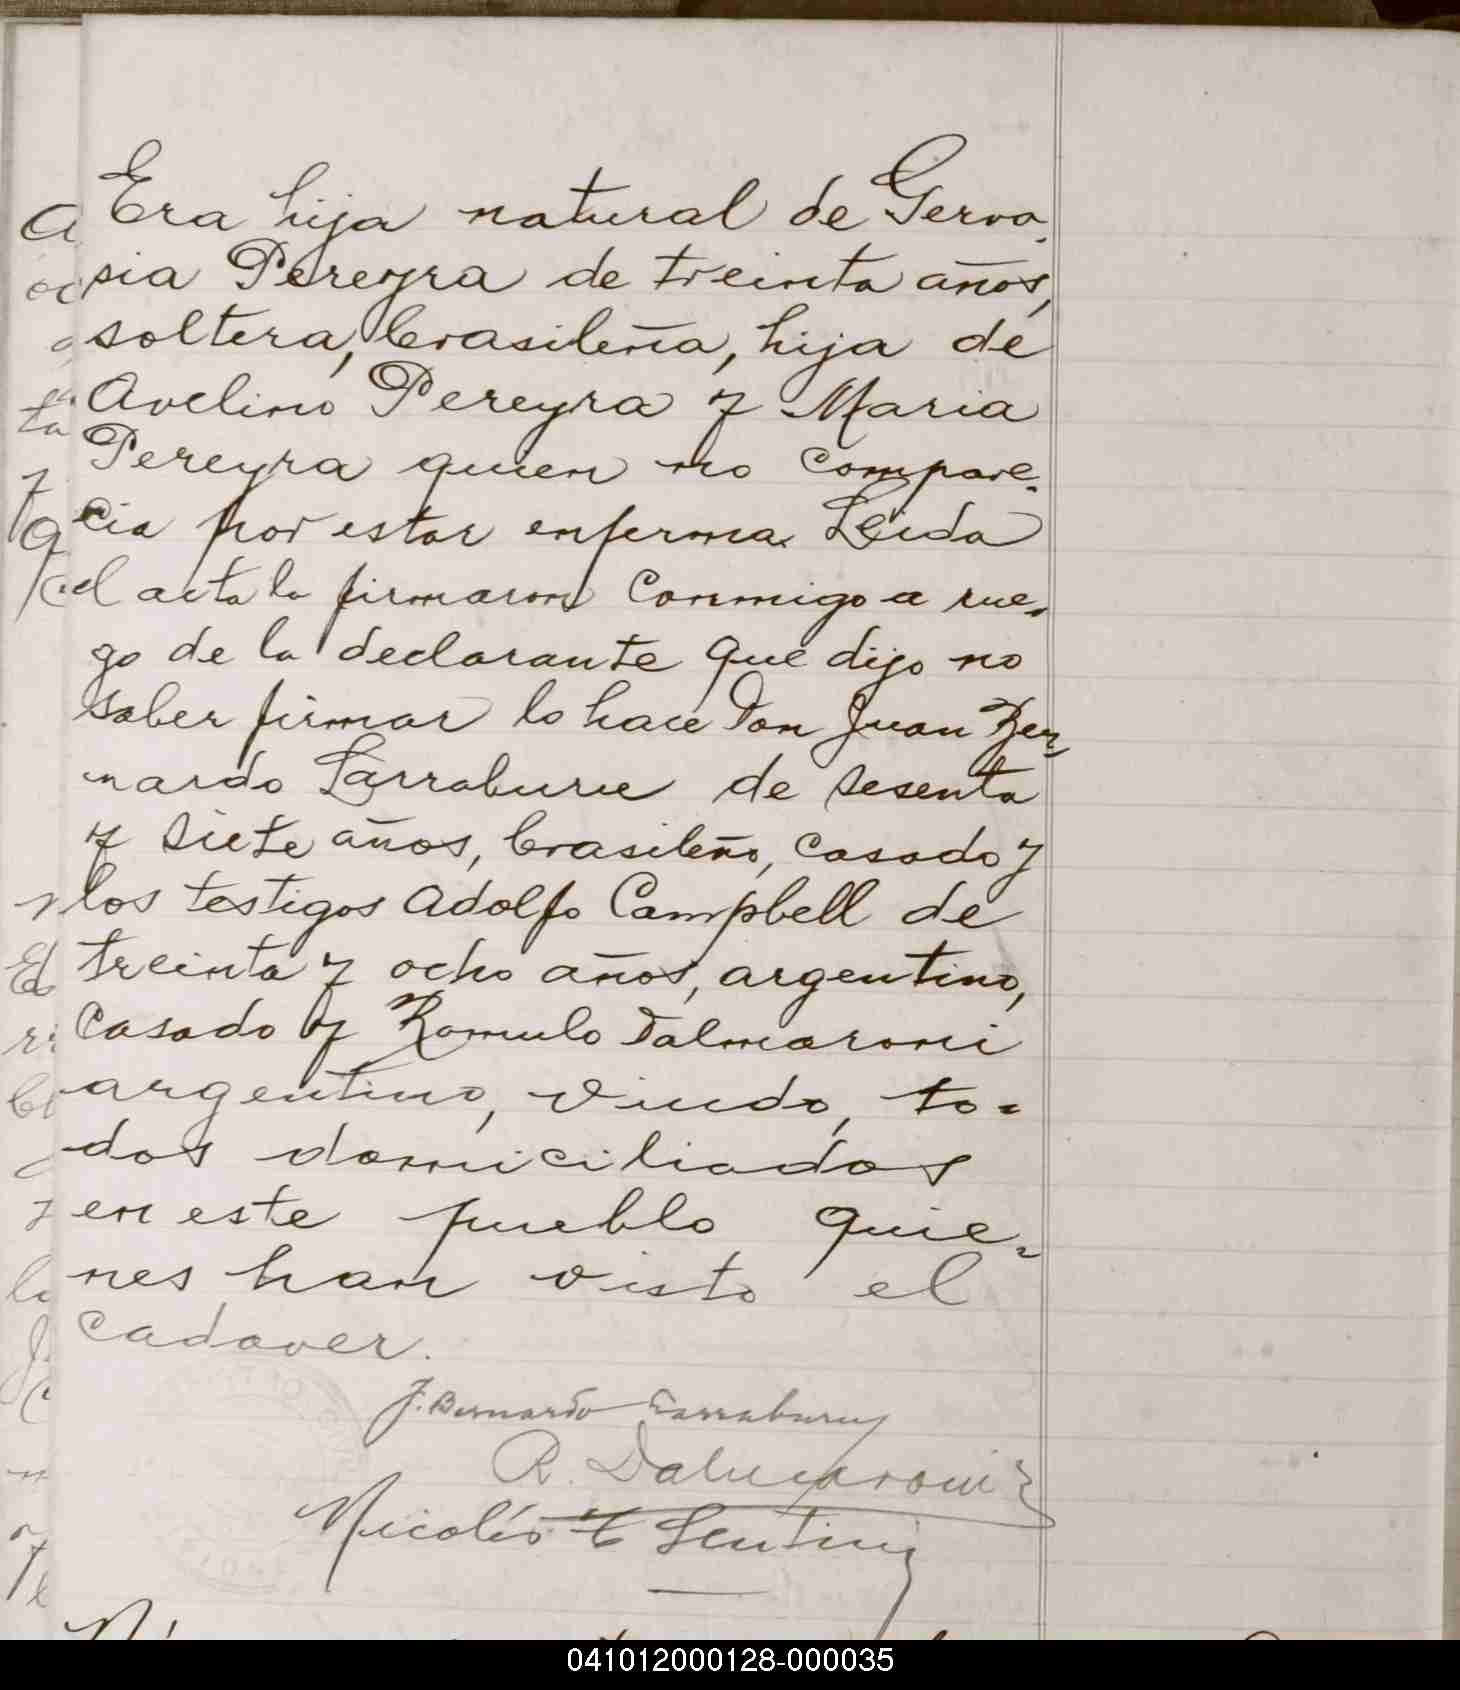 Era hija natural de Gerva-
sia Pereyra de treinta años,
soltera, brasileña, hija de
Avelino Pereyra y Maria
Pereyra quien no compare-
cia por estar enferma. Leida
el acta la firmaron conmigo a rue-
go de la declarante que dijo no
saber firmar lo hace Don Juan Ber-
nardo Larraburu de sesenta
y siete años, brasileño, casado y
los testigos Adolfo Campbell de
treinta y ocho años, argentino,
casado y Romulo Dalmaroni
argentino, viudo, to-
dos domiciliados
en este pueblo quie-
nes han visto el
cadaver.
J. Bernardo Larraburu
R. Dalmaroni
Nicolás
041012000128-000035